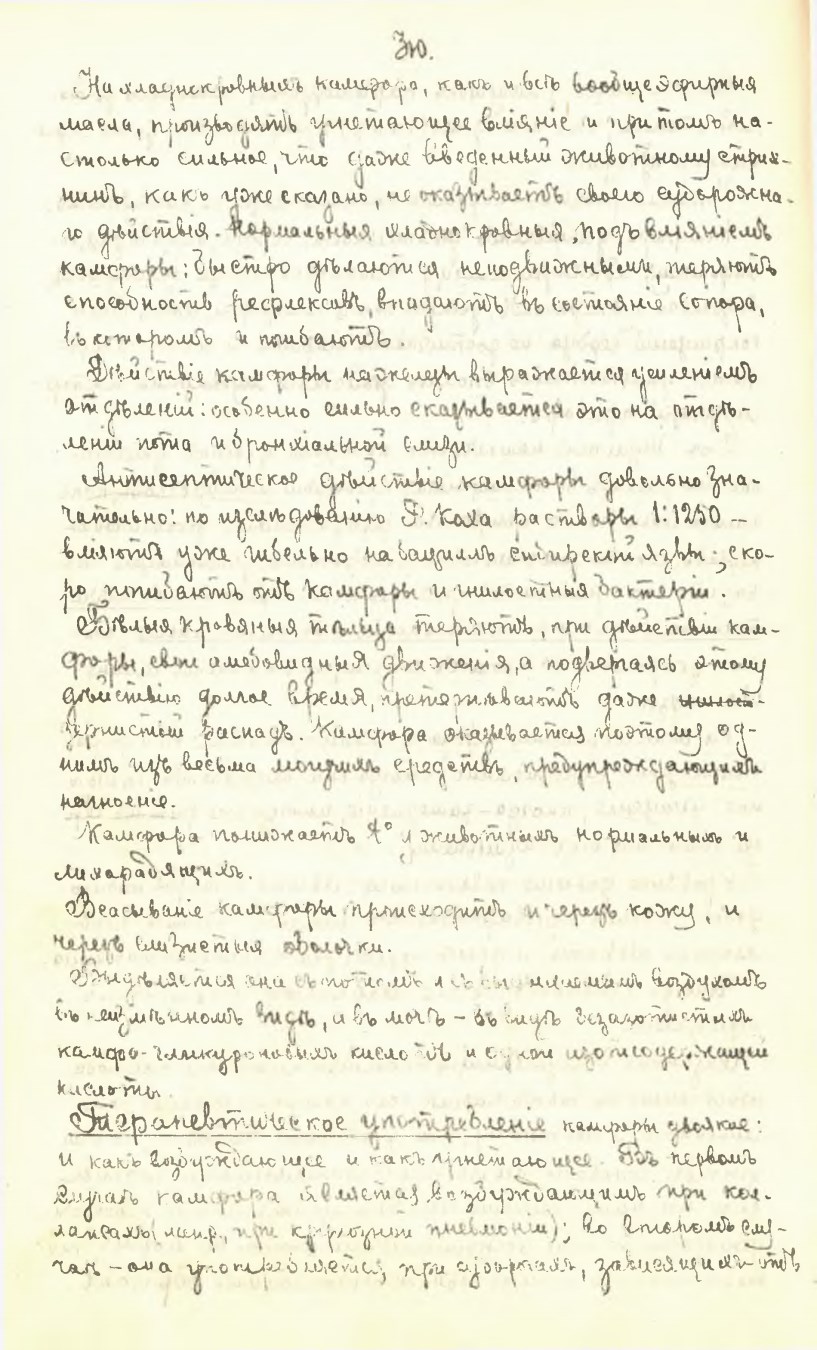 310.
На хладнокровныхъ камфора, какъ и всѣ вообще эфирныя
масла, производятъ угнетающее вліяніе и притомъ на-
столько сильное, что даже введенный животному стрих-
нинъ, какъ уже сказано, не оказываетъ своего судорожна-
го дѣйствія. Нормальныя хладнокровныя, подъ вліяніемъ
камфоры, быстро дѣлаются неподвижными, теряютъ
способность рефлексовъ, впадаютъ въ состояніе сопора,
въ которомъ и погибаютъ.
Дѣйствіе камфоры на железы выражается усиленіемъ
отдѣленій: особенно сильно сказывается это на отдѣ-
леніи пота и бронхіальной слизи.
Антисептическое дѣйствіе камфоры довольно зна-
чительно: по изслѣдованію Р. Коха растворы 1:1250 –
вліяютъ уже гибельно на бациллъ сибирской язвы; ско-
ро погибаютъ отъ камфоры и гнилостныя бактеріи.
Бѣлыя кровяныя тѣльца теряютъ, при дѣйствіи кам-
форы, свои амебовидныя движенія, а подвергаясь этому
дѣйствію долгое время, претерпѣваютъ даже
зернистый распадъ. Камфора оказывается поэтому од-
нимъ изъ весьма могучихъ средствъ, предупреждающихъ
нагноеніе.
Камфора понижаетъ t° у животныхъ нормальныхъ и
лихорадящихъ.
Всасываніе камфоры происходитъ и черезъ кожу, и
черезъ слизистыя оболочки.
Выдѣляется она съ потомъ и съ выдыхаемымъ воздухомъ
въ неизмѣнномъ видѣ, и въ мочѣ – въ видѣ безазотистыхъ
камфо-гликуроновыхъ кислотъ и одной азотсодержащей
кислоты.
Терапевтическое употребленіе камфоры двоякое:
и какъ возбуждающее и какъ угнетающее. Въ первомъ
случаѣ камфора является возбуждающимъ при кол-
лапсахъ (напр., при крупозной пневмоніи); во второмъ слу-
чаѣ – она употребляется, при судорогахъ, зависящихъ отъ